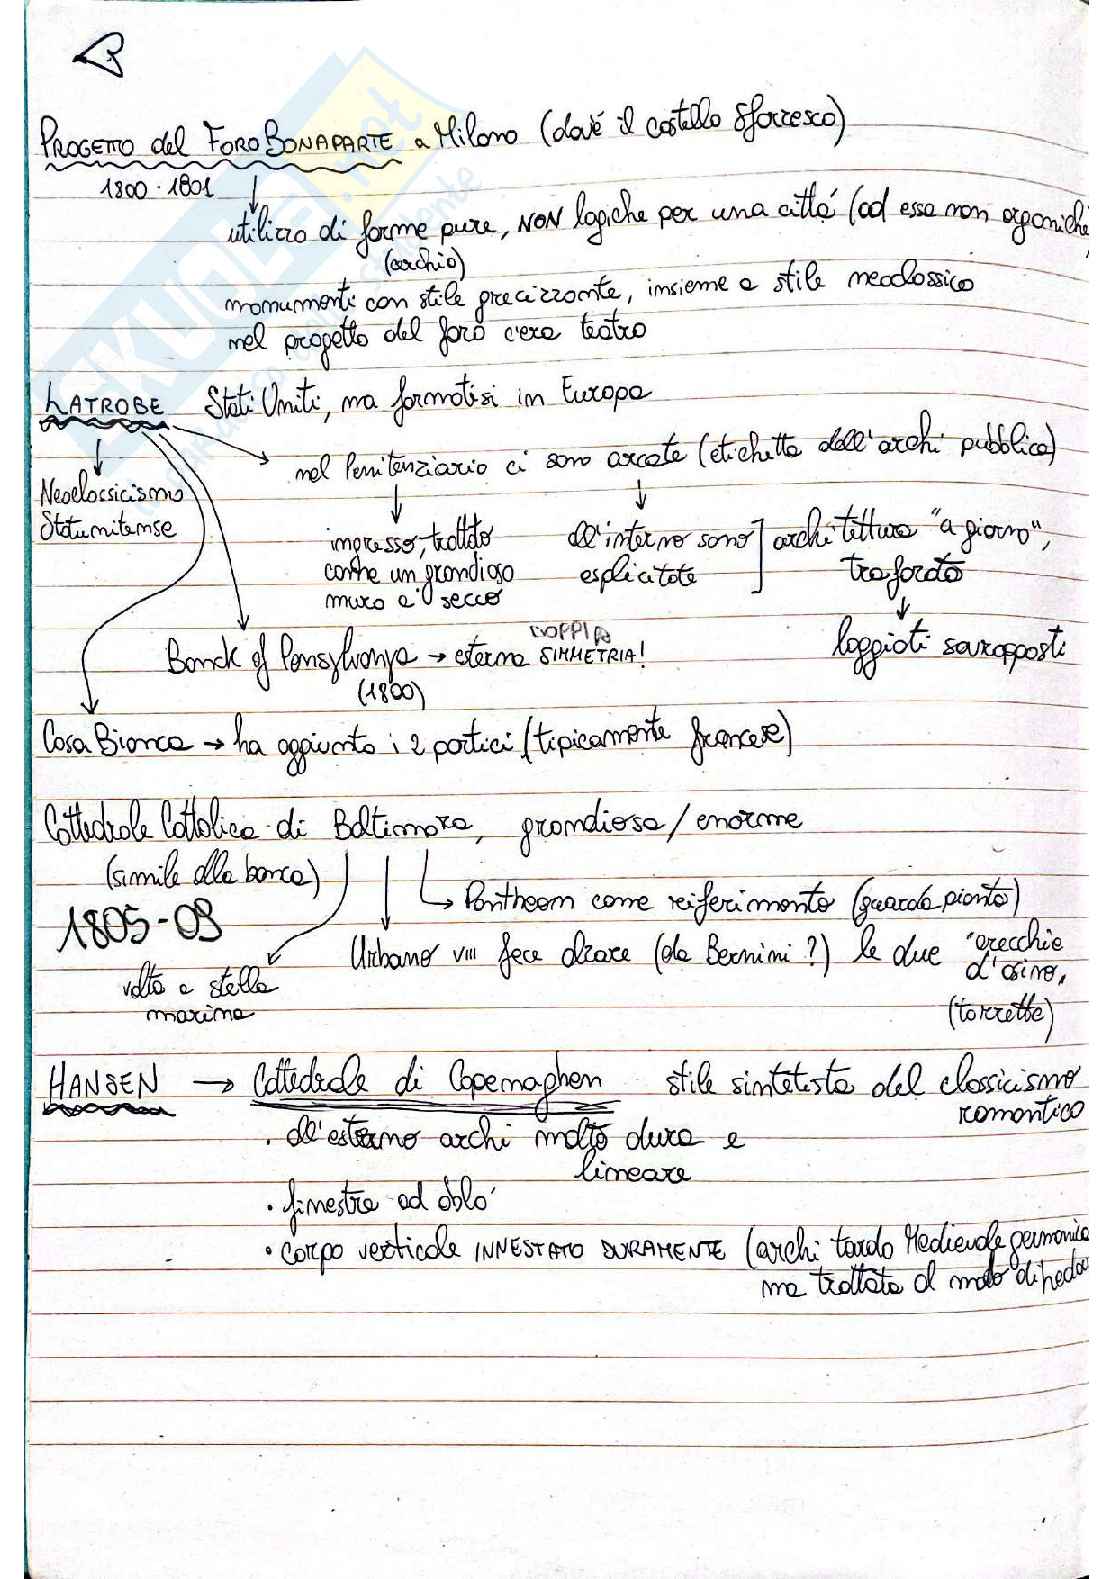 PROGETTO del FORO BONAPARTE a Milano (dov'è il castello Sforzesco)
1800 - 1801
utilizzo di forme pure, NON logiche per una città (ad essa non organiche
(cerchio)
monumenti con stile grecizzante, insieme a stile neoclassico
nel progetto del foro c'era teatro
LATROBE Stati Uniti, ma formatisi in Europa
nel Penitenziario ci sono arcate (etichetta dell'archi pubblica)
Neoclassicismo
Statunitense
ingresso, trattato
come un grandioso
muro a secco
all'interno sono
esplicitate
architettura "a giorno",
traforata
loggiati sovrapposti
Banck of Pensylvanya → esterna DOPPIA SIMMETRIA!
(1800)
Casa Bianca → ha aggiunto i 2 portici (tipicamente francese)
Cattedrale Cattolica di Baltimora, grandiosa/enorme
(simile alla banca)
Pantheon come riferimento (guarda pianta)
1805-09
Urbano VIII fece alzare (da Bernini ?) le due "orecchie
d'asino,
(torrette)
volta a stella
marina
HANSEN → Cattedrale di Copenaghen stile sintetista del classicismo
romantico
• all'esterno archi molto dura e
lineare
• finestre ad oblò
• corpo verticale INNESTATO DURAMENTE (archi tardo Medievale germanica
ma trattata al modo di